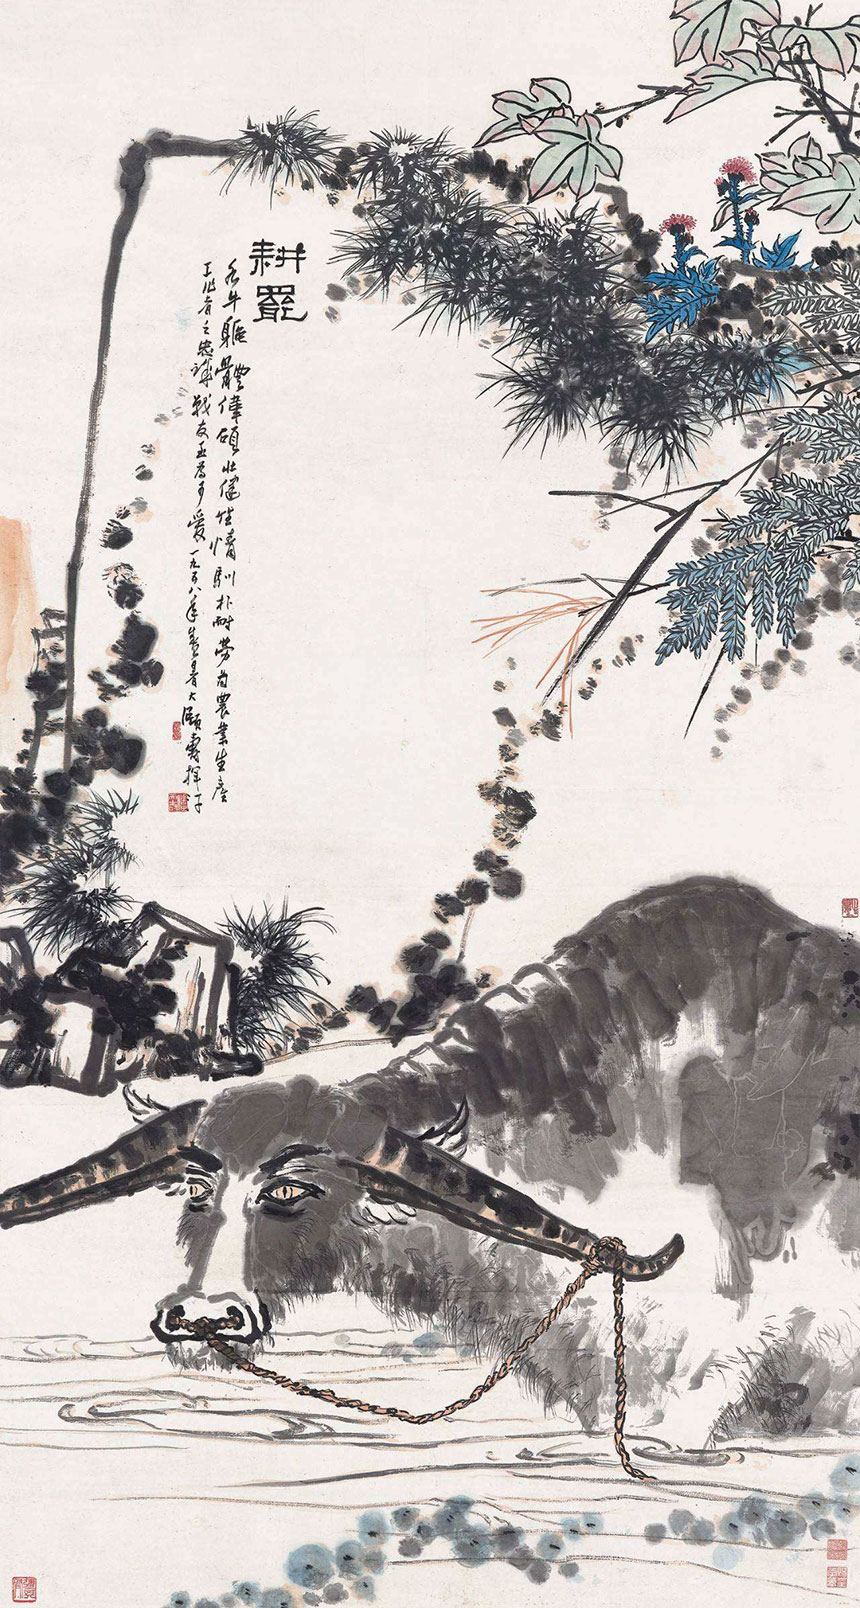 耕罷
水牛軀體豐偉碩壯健性情馴朴耐勞爲農業生產
工作者之忠誠戰友至爲可愛一九五八年春大頤壽指墨